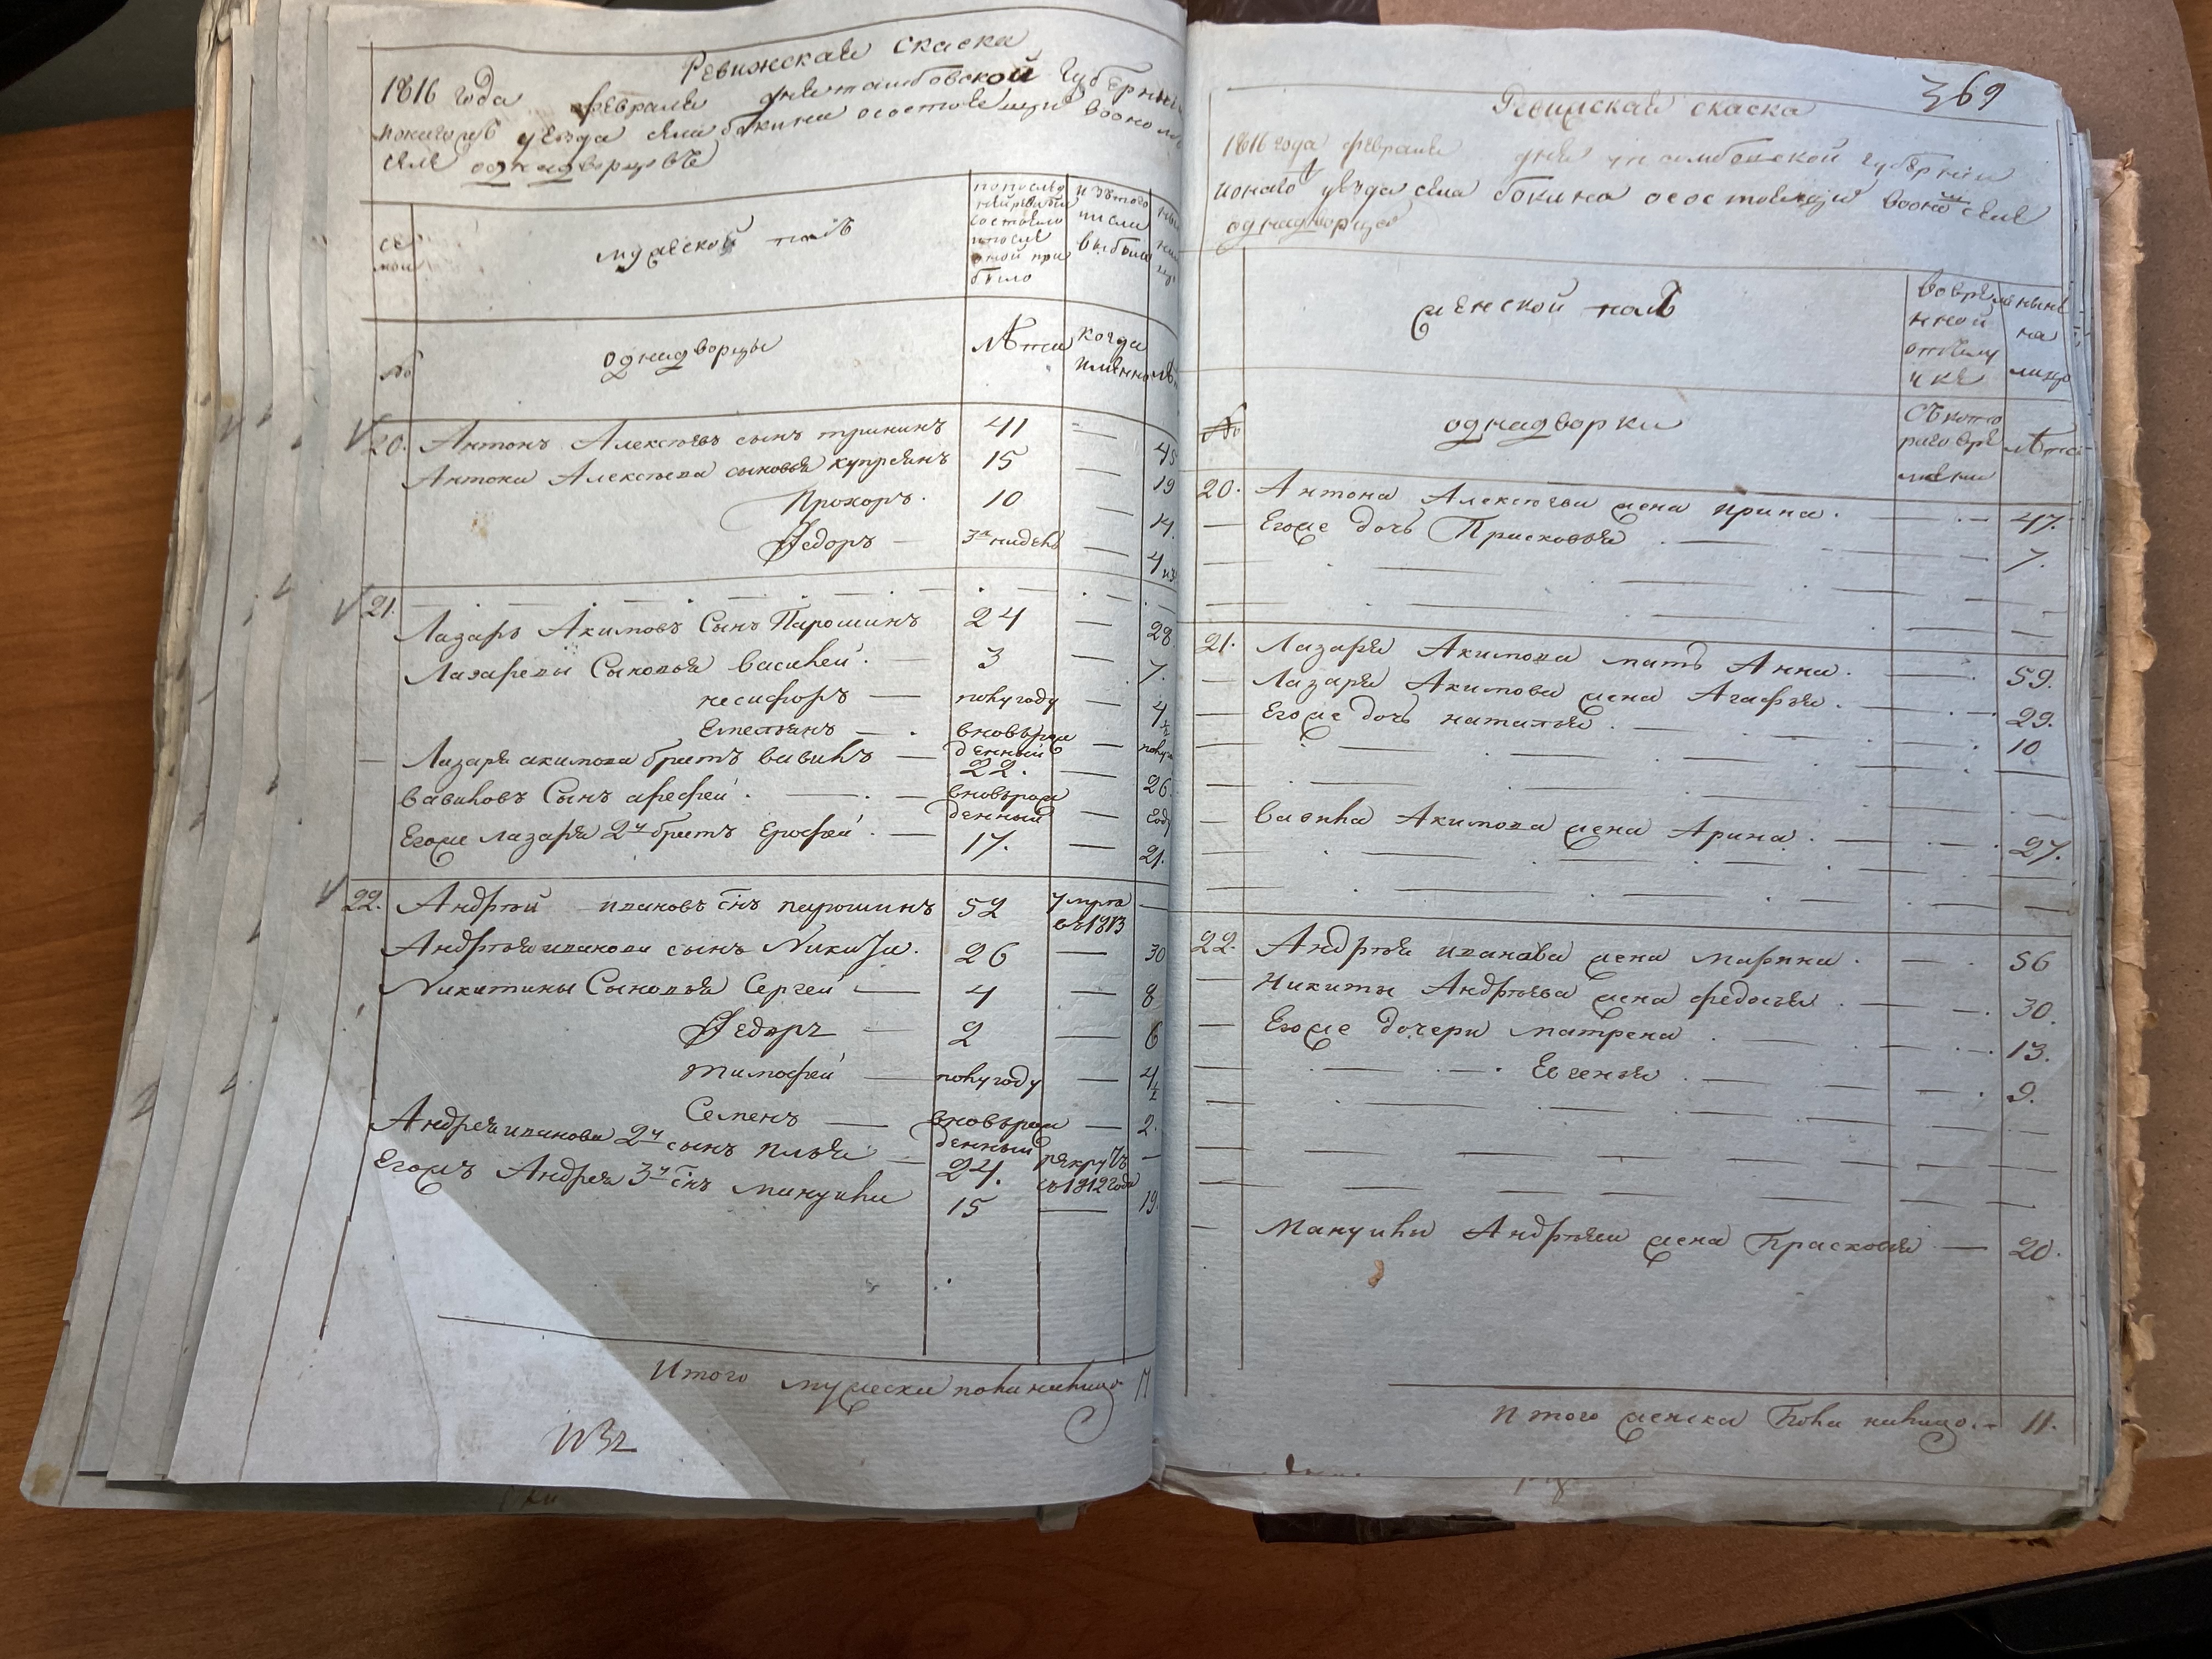 Ревижская скаска
1816 года февраля дня тамбовской губернии
уезда села бокина осостоящи воономъ
селе однадворцовъ
се
мьи
мужеской полъ
по послед
ней ревизии
состояло
и после
оной при
было
изътого
числа
выбыло
№
однадворцы
лѣта
когда
имянно
20. Антонъ Алексѣевъ сынъ 41 — 45
Антона Алексѣева сыновья купреянъ 15 — 19
Прохоръ. 10 — 14.
Федоръ — 3х нидель — 4
21.
Лазарь Акимовъ Сынъ Парошинъ 24 — 28
Лазаревы Сыновья Василей. — 3 — 7.
несифоръ — полугоду — 4½
Емельянъ — вновърож
денный —
— Лазаря акимова братъ вавилъ — 22. — 26
вавиловъ Сынъ арефей. — вновърож
денный —
Егоже Лазаря 2й братъ Ерофей. — 17. — 21.
22. Андрѣй ивановъ снъ парошинъ 52 —
въ 1813
Андрѣя иванова сынъ Никита. 26 — 30
Никитины Сыновья Сергей — 4 — 8
Федоръ — 2 — 6
тимофей — полугоду — 4½
Семенъ — вновърож
денный — 2.
Андрея иванова 2й сынъ илья — 24. рекрутъ —
съ 1812 года
Егожъ Андрея 3й снъ мануила 15 — 19
Итого мужеска пола налицо 17
369
Ревижская скаска
1816 года февраля дня тамбовской губернии
уезда села бокина осостоящи воономъ селе
однадворца
женской полъ
вовре
нной
отлу
чке
ныне
на
лицо
№
однадворки
съ кото
раго вре
мени
лѣта
20. Антона Алексѣева жена ирина. — 47.
— Егоже дочь Прасковья. — 7.
21. Лазаря Акимова мать Анна. — 59.
— Лазаря Акимова жена Агафья. — 29.
— Егоже дочь наталья. — 10
— вавила Акимова жена Арина. — 27.
22. Андрѣя иванова жена марина. — 56
— Никиты Андрѣева жена федосья. — 30.
— Егоже дочери матрена. — 13.
Евгенья. — 9.
— Мануилы Андрѣева жена Прасковья — 20.
Итого женска пола налицо. — 11.